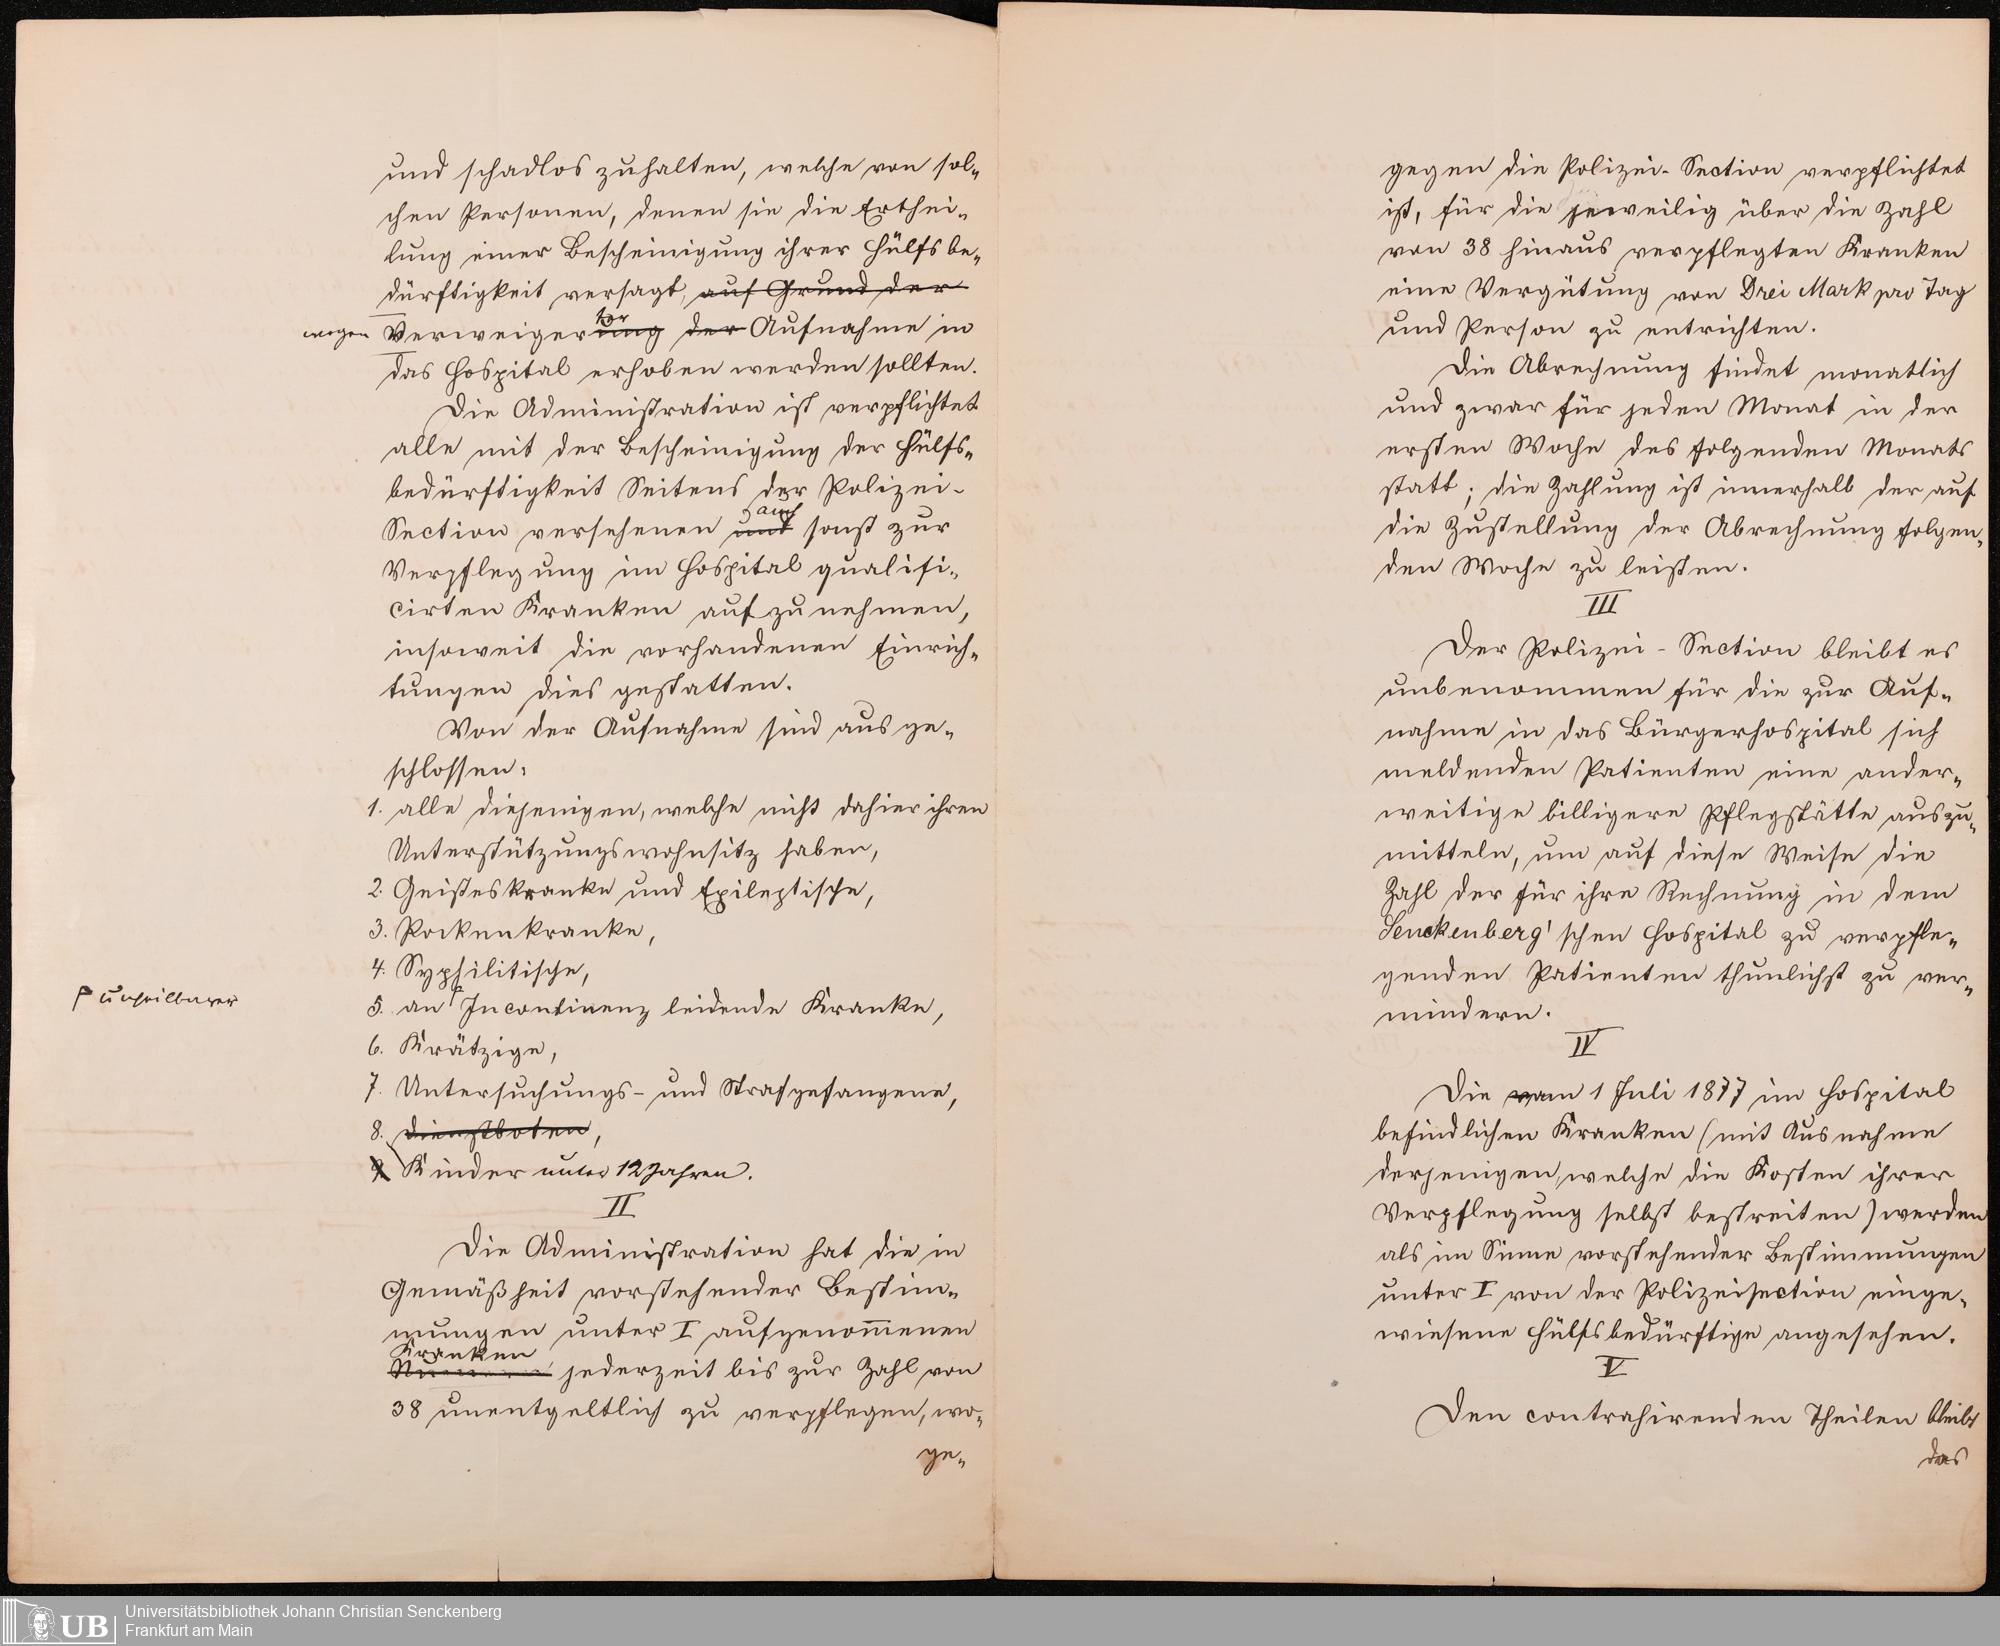 und schadlos zuhalten, welche von sol-
chen Personen, denen sie die Erthei-
lung einer Bescheinigung ihrer Hülfsbe-
dürftigkeit versagt, auf Grund der
wegen Verweigerung ter der Aufnahme in
das Hospital erhoben werden sollten.
Die Administration ist verpflichtet
alle mit der Bescheinigung der Hülfs-
bedürftigkeit Seitens der Polizei-
auch
Section versehenen und sonst zur
Verpflegung im Hospital qualifi-
cirten Kranken aufzunehmen,
insoweit die vorhandenen Einrich-
tungen dies gestatten.
Von der Aufnahme sind ausge-
schlossen:
1. alle diejenigen, welche nicht dahier ihren
Unterstützungswohnsitz haben,
2. Geisteskranke und Epileptische,
3. Pockenkranke,
4. Syphilitische,
unheilbarer
5. an Incontinenz leidende Kranke,
6. Krätzige,
7. Untersuchungs- und Strafgefangene,
8. Dienstboten,
9. Kinder unter 12 Jahren.
II
Die Administration hat die in
Gemäßheit vorstehender Bestim-
mungen unter I aufgenommenen
Kranken
jederzeit bis zur Zahl von
38 unentgeltlich zu verpflegen, wo-
ge-
gegen die Polizei-Section verpflichtet
ist, für die jeweilig über die Zahl
von 38 hinaus verpflegten Kranken
eine Vergütung von Drei Mark pro Tag
und Person zu entrichten.
Die Abrechnung findet monatlich
und zwar für jeden Monat in der
ersten Woche des folgenden Monats
statt; die Zahlung ist innerhalb der auf
die Zustellung der Abrechnung folgen-
den Woche zu leisten.
III
Der Polizei-Section bleibt es
unbenommen für die zur Auf-
nahme in das Bürgerhospital sich
meldenden Patienten eine ander-
weitige billigere Pflegstätte auszu-
mitteln, um auf diese Weise die
Zahl der für ihre Rechnung in dem
Senckenberg'schen Hospital zu verpfle-
genden Patienten thunlichst zu ver-
mindern.
IV
Die am 1 Juli 1877 im Hospital
befindlichen Kranken (mit Ausnahme
derjenigen, welche die Kosten ihrer
Verpflegung selbst bestreiten) werden
als im Sinne vorstehender Bestimmungen
unter I von der Polizeisection einge-
wiesene Hülfsbedürftige angesehen.
V
Den contrahirenden Theilen bleibt
das
UB
Universitätsbibliothek Johann Christian Senckenberg
Frankfurt am Main